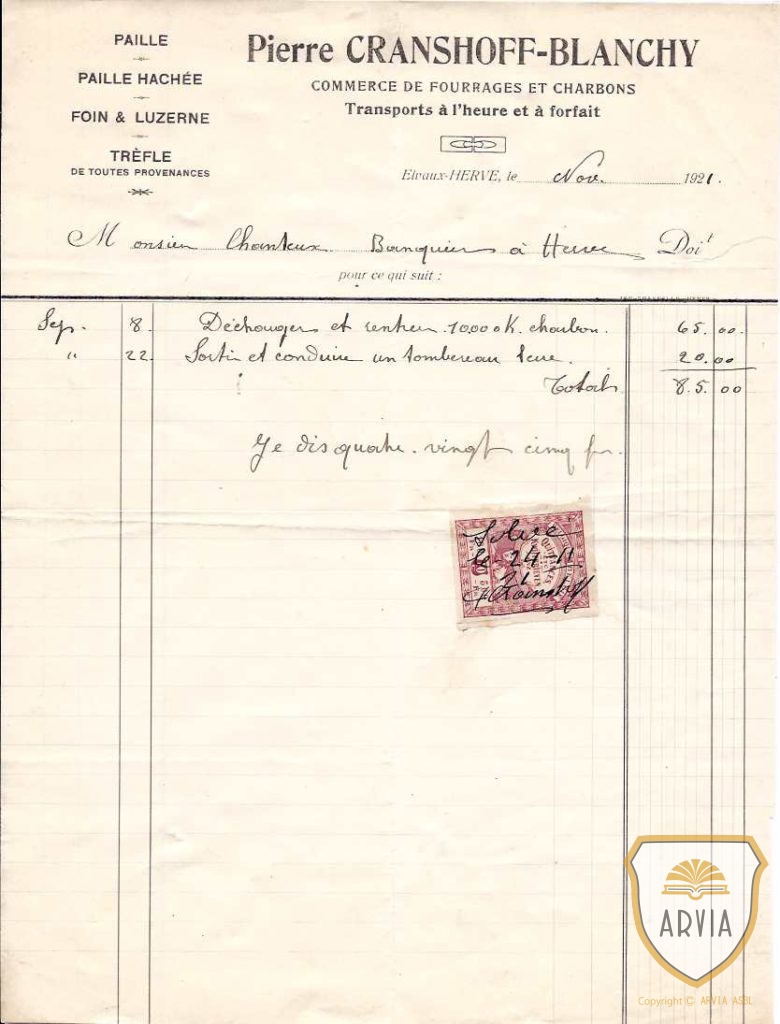 PAILLE
PAILLE HACHÉE
FOIN & LUZERNE
TRÈFLE
DE TOUTES PROVENANCES
Pierre CRANSHOFF-BLANCHY
COMMERCE DE FOURRAGES ET CHARBONS
Transports à l'heure et à forfait
Elvaux-HERVE, le Nov. 1921.
Monsieu Chanteux Banquier à Herve Doit
pour ce qui suit :
Sep. 8. Déchouger et rentrer 10,000 K. charbon. 65.00.
" 22. Sortir et conduire un tombereau terre. 20.00
Totals 85.00
Je dis quatre-vingt cinq fr.
le 24-11
21
ARVIA
Copyright © ARVIA ASBL